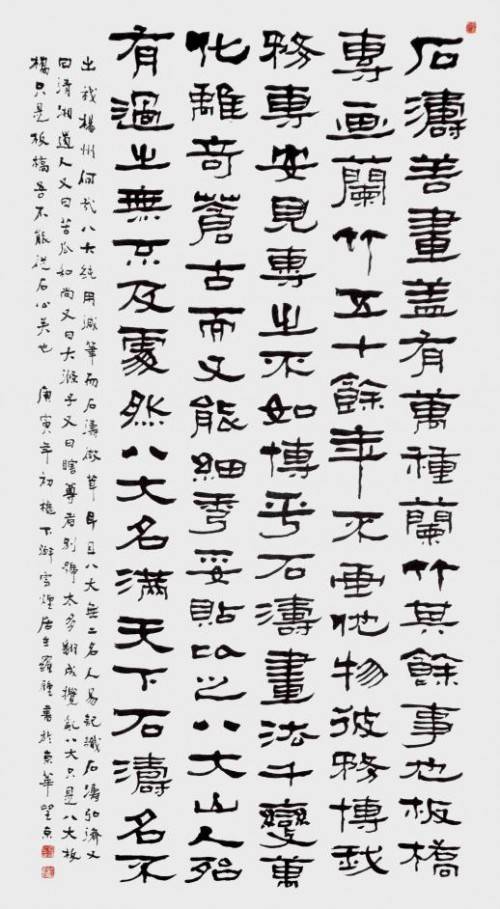 石濤善畫蓋有萬種蘭竹其餘事也板橋
專画蘭竹五十餘年不画他物彼務博我
務專安見專之不如博乎石濤畫法千變萬
化離奇蒼古而又能細秀妥貼比之八大山人殆
有過之無不及處然八大名滿天下石濤名不
出我楊州何哉八大純用減筆而石濤微茸耳且八大無二名人易記識石濤弘濟又
曰清湘道人又曰苦瓜和尚又曰大滌子又曰瞎尊者別號太多翻成攪亂八大只是八大板
橋只是板橋吾不能從石公矣也 庚寅年初 下游雪煙居主羅鍾書於京華望京